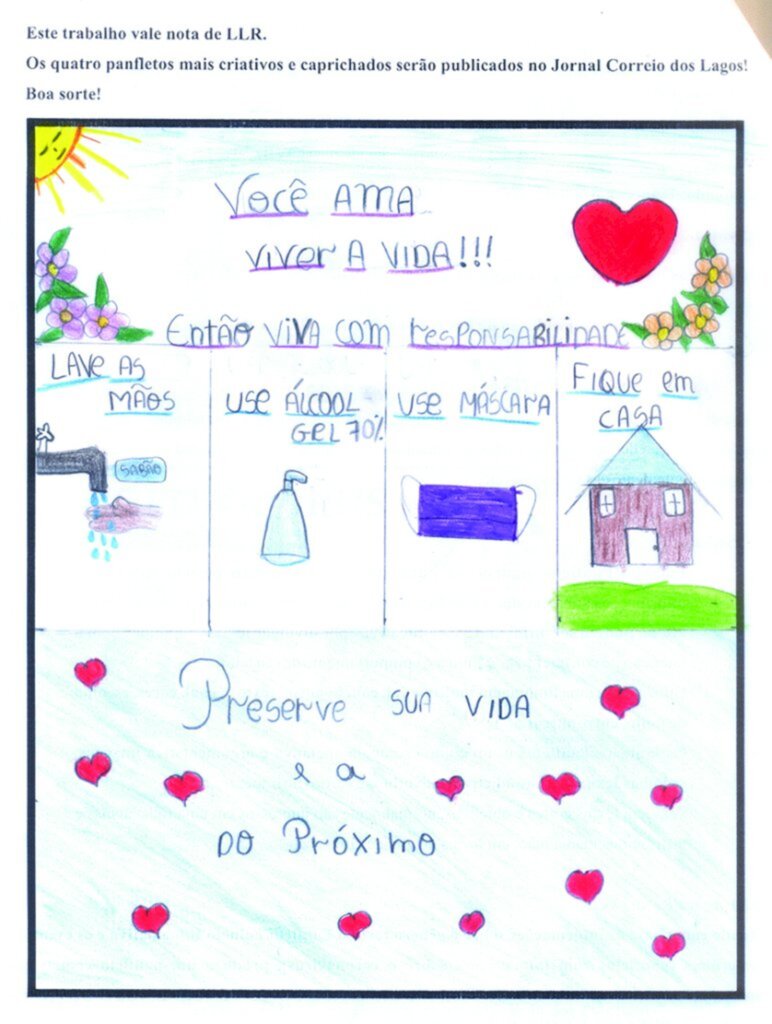 Este trabalho vale nota de LLR.
Os quatro panfletos mais criativos e caprichados serão publicados no Jornal Correio dos Lagos!
Boa sorte!
Você AMA
viver A VIDA!!!
Então viva com responsabilidade
LAVE AS
MÃOS
SABÃO
USE ÁLCOOL
GEL 70%
USE MÁSCARA
FIQUE em
CASA
Preserve SUA VIDA
e a
DO Próximo